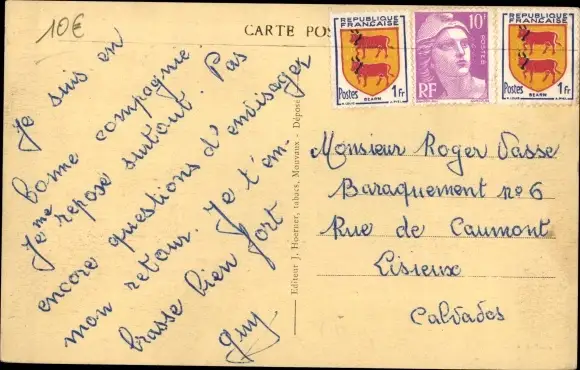 10€
CARTE POS
RÉPUBLIQUE FRANÇAISE
Postes 1Fr
BEARN
10F
POSTES
RF
RÉPUBLIQUE FRANÇAISE
Postes 1Fr
BEARN
Je suis en
bonne compagnie
Je me repose surtout. Pas
encore questions d'envisager
mon retour. Je t'em-
brasse bien fort
Guy
Editeur J. Hoerner, tabacs, Mouvaux - Déposé
Monsieur Roger Vasse
Baraquement no 6
Rue de Caumont
Lisieux
Calvados